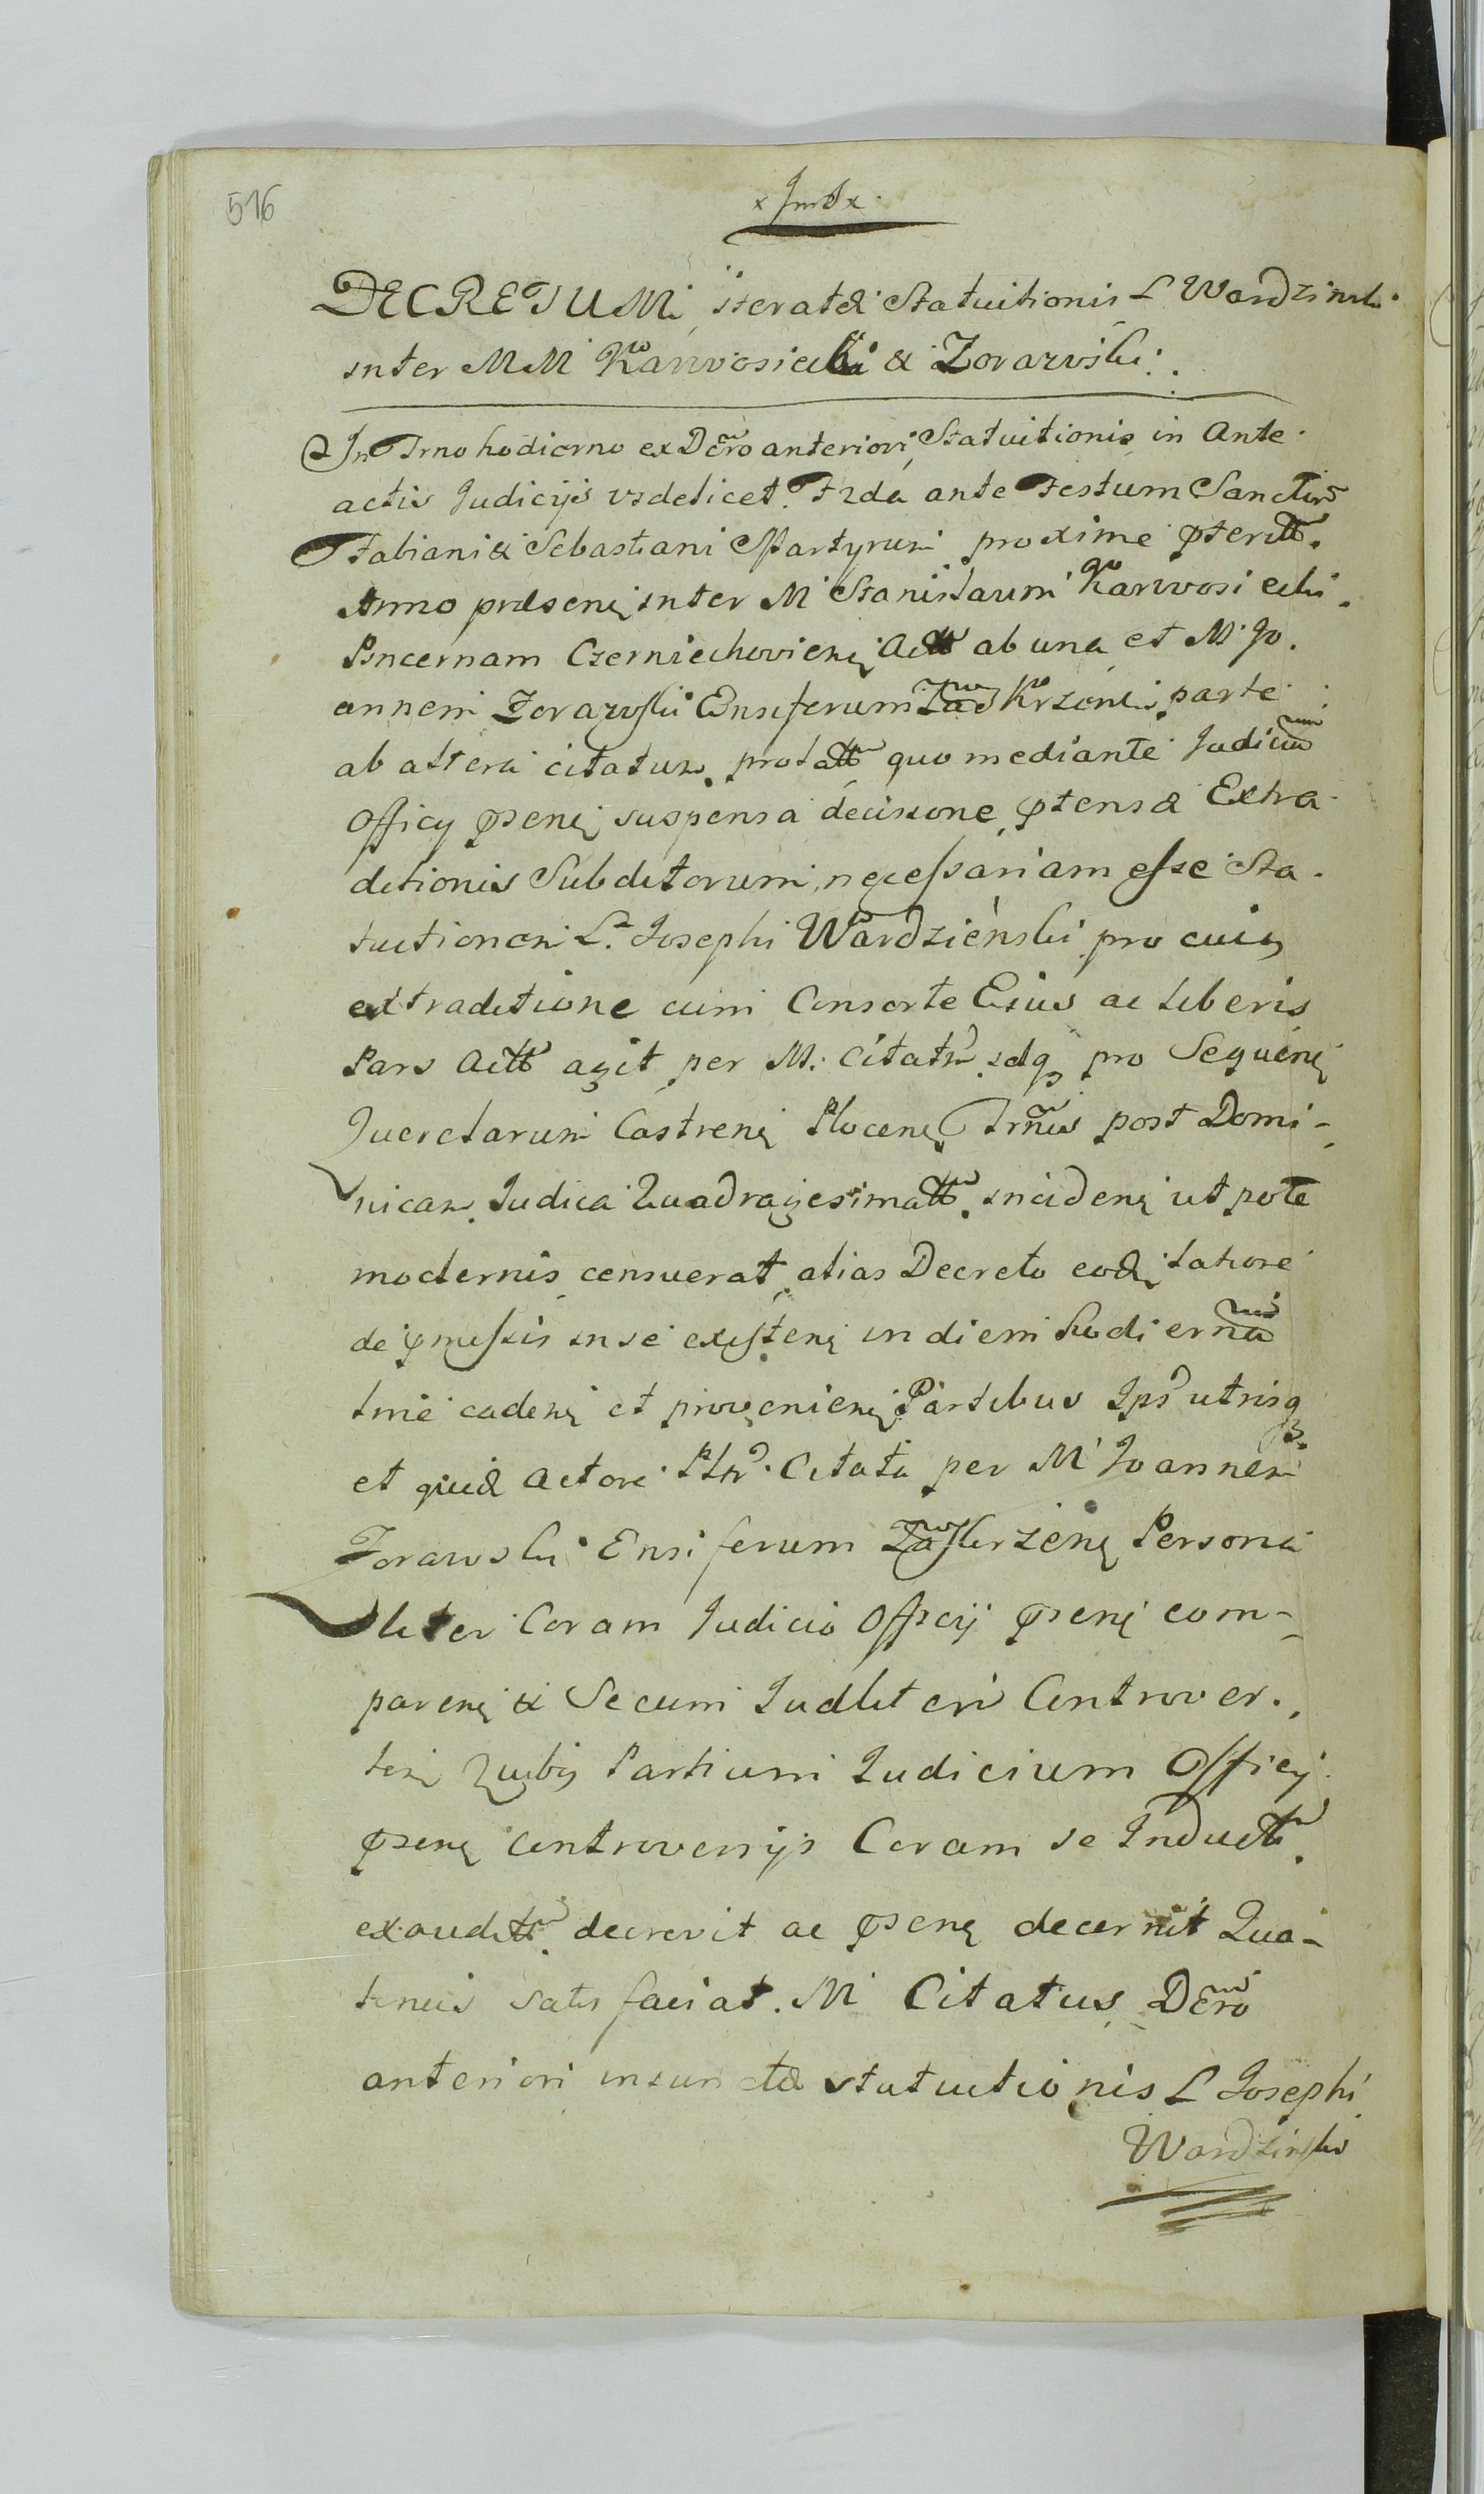 516
DECRETUM iteratæ Statuitionis L Wardzinski
inter MM Karwosiecki & Zorawski
In Trno hodierno ex Dcro anteriori Statuitionis in Ante
actis Judicijs videlicet Frda ante Festum Sanctor
Fabiani & Sebastiani Martyrum proxime pterit
Anno præsen inter M Stanislaum Karwosiecki
Pincernam Czerniechovien Act ab una et M Jo
annem Zorawski Ensiferum Zaw Krzen parte
ab altera citatum prolatt quo mediante Judicium
Officy psen suspensa decisione ptensæ Extra
ditionis Subditorum necessariam esse Sta
tuitionem L Josephi Wardzieński pro cuis
extraditione cum Consorte Eius ac liberis
Pars Actt agit per M. Citatu idq pro Sequen
Querelarum Castren Plocen Trnis post Domi-
nicam Judica Quadragesimatt inciden ut pote
modernis censuerat alias Decreto eod latiore
de pmissis in se existen in diem hodiernam
tme caden et provenien Partibus Ips utrisq
et quid Actore Citata per M Joannem
Zorawski Ensiferum Zawskrzen Persona
liter Coram Judicio Officij psen com-
paren & Secum Judliter Controver
ten Quibs Partium Judicium Officij
psen controversijs Coram se Induct
exaudit decrevit ac psen decernit Qua-
tenus satisfaciat M Citatus Dcro
anteriori iniunctæ statuitionis L Josephi
Wardzinski